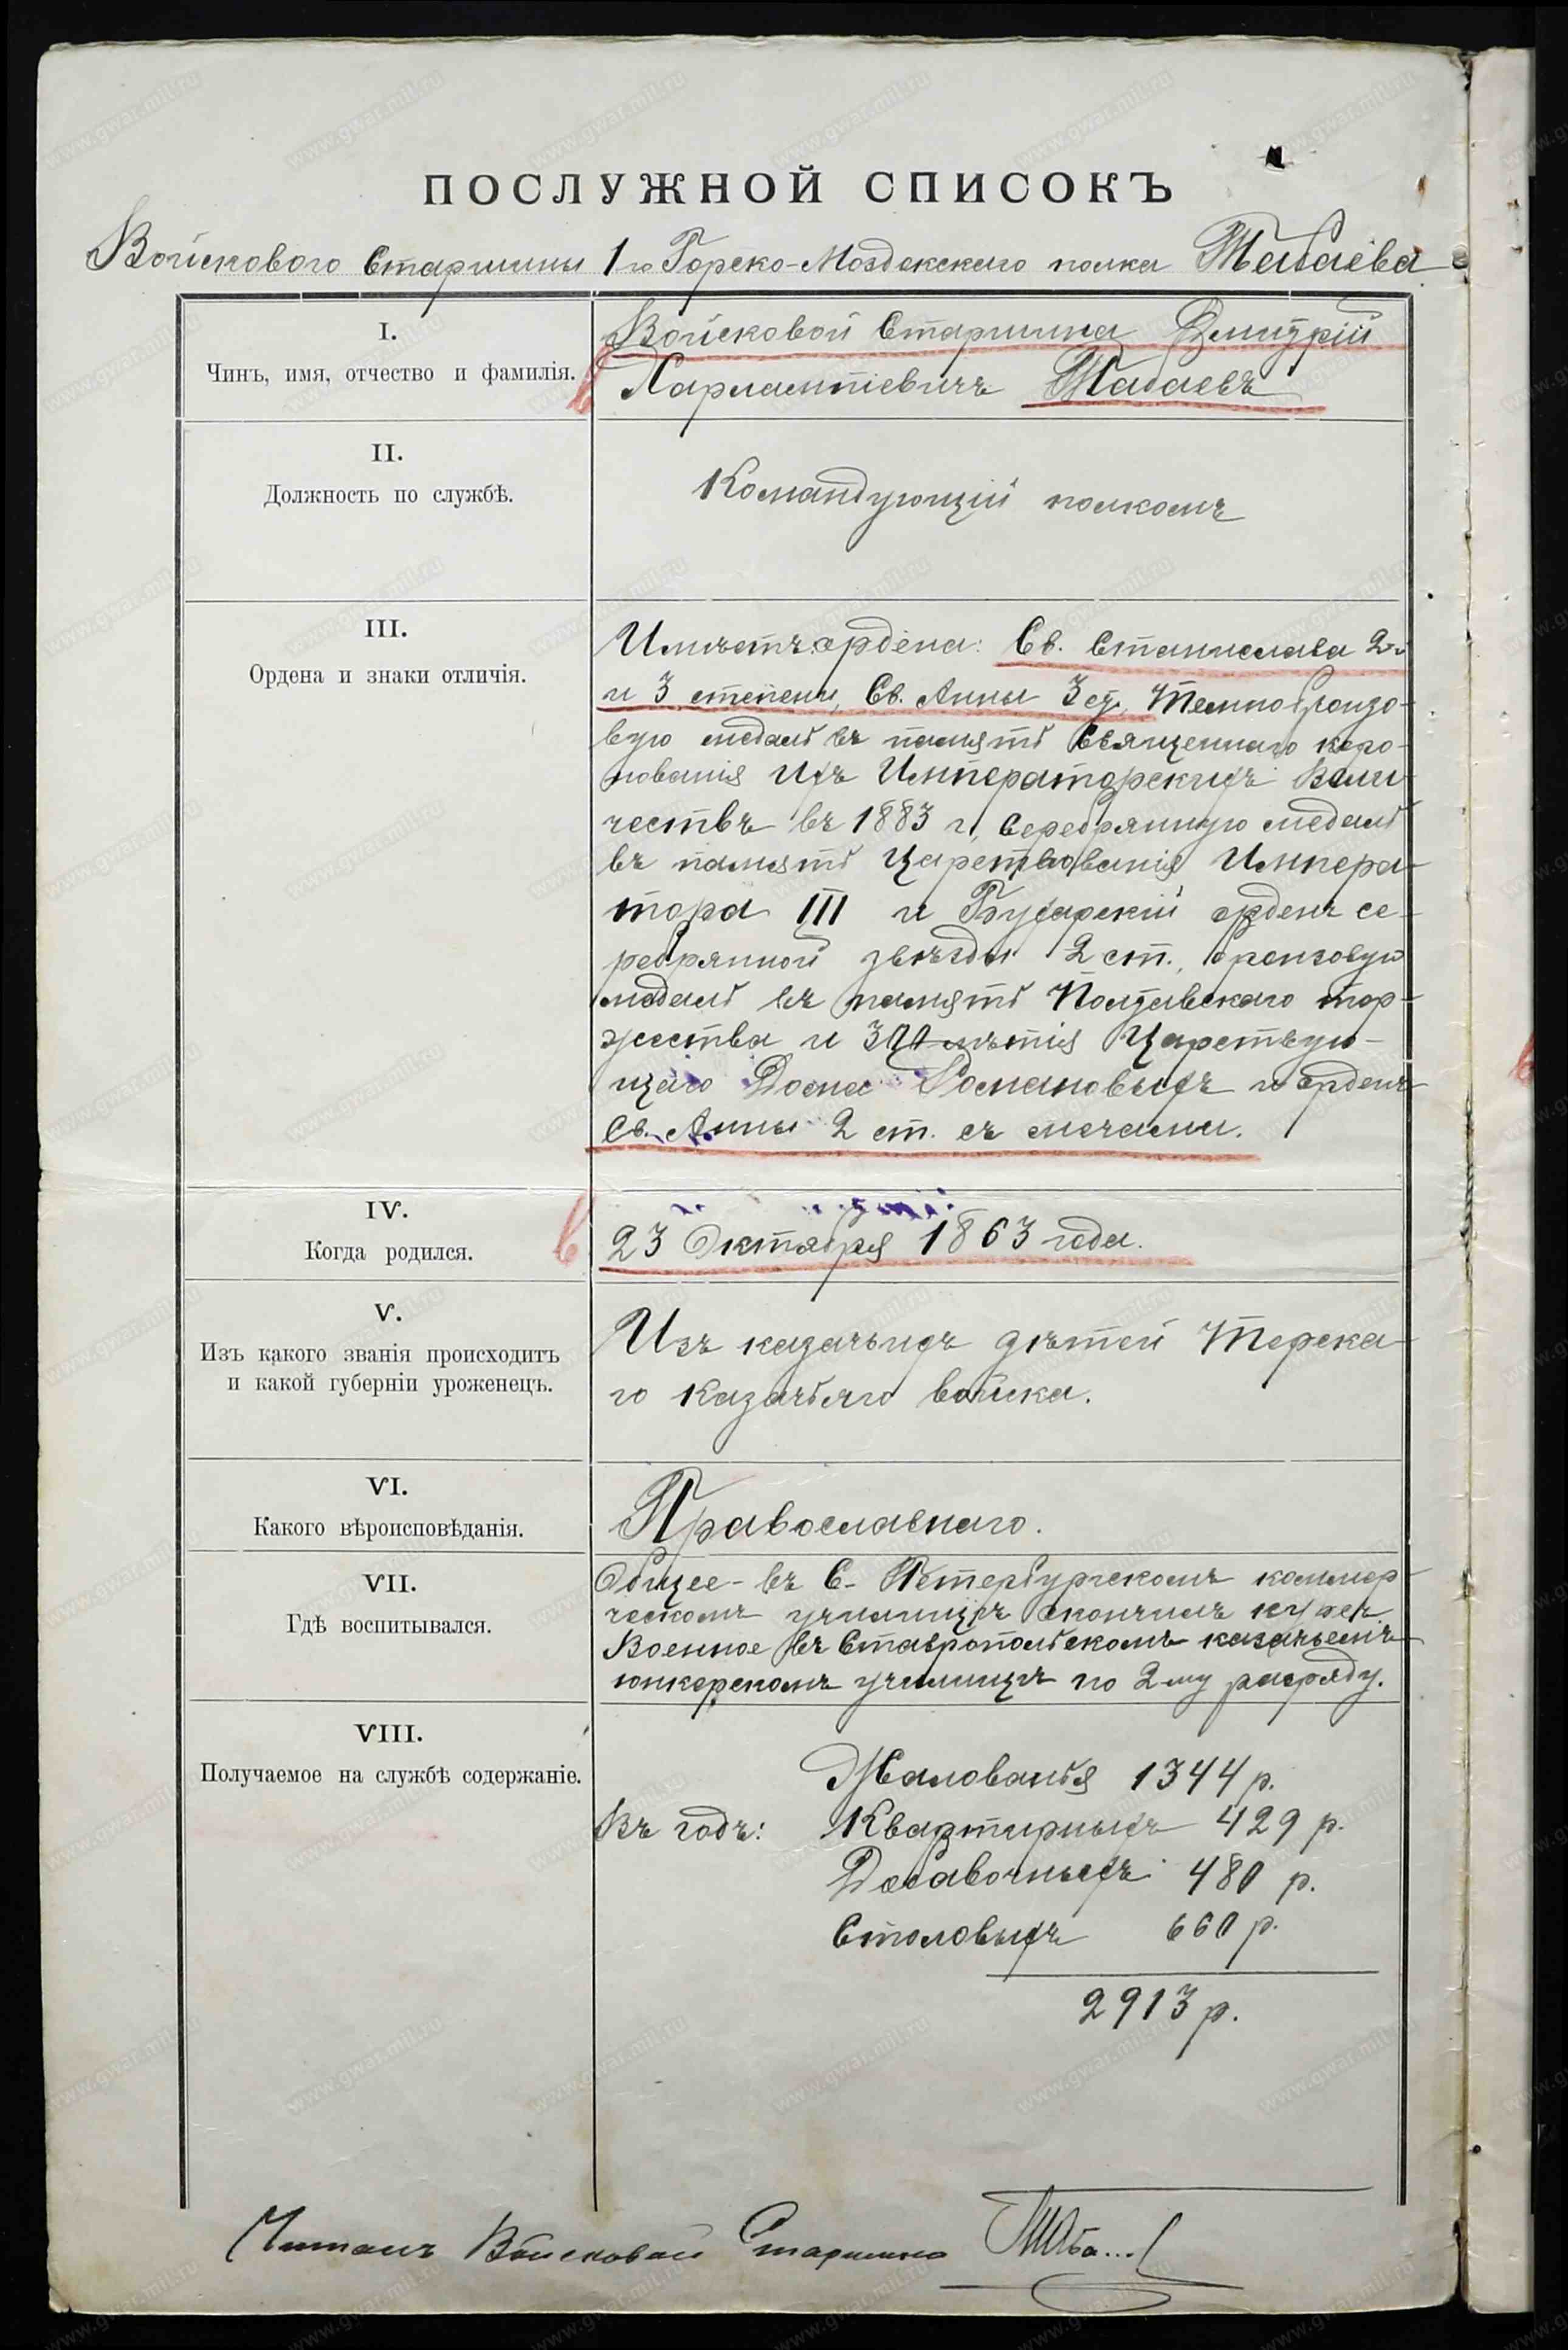 ПОСЛУЖНОЙ СПИСОКЪ
Войскового Старшины 1го Горско-Моздокскаго полка Табаева
I.
Чинъ, имя, отчество и фамилія.
Войсковой Старшина Дмитрій
Харлампіевичъ Табаевъ
II.
Должность по службѣ.
Командующій полкомъ
III.
Ордена и знаки отличія.
Имѣетъ ордена: Св. Станислава 2й
и 3 степени, Св. Анны 3 ст., темнобронзо-
вую медаль въ память Священнаго коро-
нованія Ихъ Императорскихъ Вели-
чествъ въ 1883 г., серебрянную медаль
въ память Царствованія Импера-
тора III и Бухарскій орденъ се-
ребрянной звѣзды 2 ст., бронзовую
медаль въ память Полтавскаго тор-
жества и 300-лѣтія Царствую-
щаго Дома Романовыхъ и орденъ
Св. Анны 2 ст. съ мечами.
IV.
Когда родился.
23 Октября 1863 года.
V.
Изъ какого званія происходитъ
и какой губерніи уроженецъ.
Изъ казачьихъ дѣтей Терска-
го Казачьяго войска.
VI.
Какого вѣроисповѣданія.
Православнаго.
VII.
Гдѣ воспитывался.
Общее - въ С. Петербургскомъ коммер-
ческомъ училищѣ окончилъ курсъ
Военное въ Ставропольскомъ казачьемъ
юнкерскомъ училищѣ по 2му разряду.
VIII.
Получаемое на службѣ содержаніе.
Въ годъ:
Жалованья 1344 р.
Квартирныхъ 429 р.
Добавочныхъ 480 р.
Столовыхъ 660 р.
2913 р.
Читалъ Войсковой Старшина
www.gwar.mil.ru